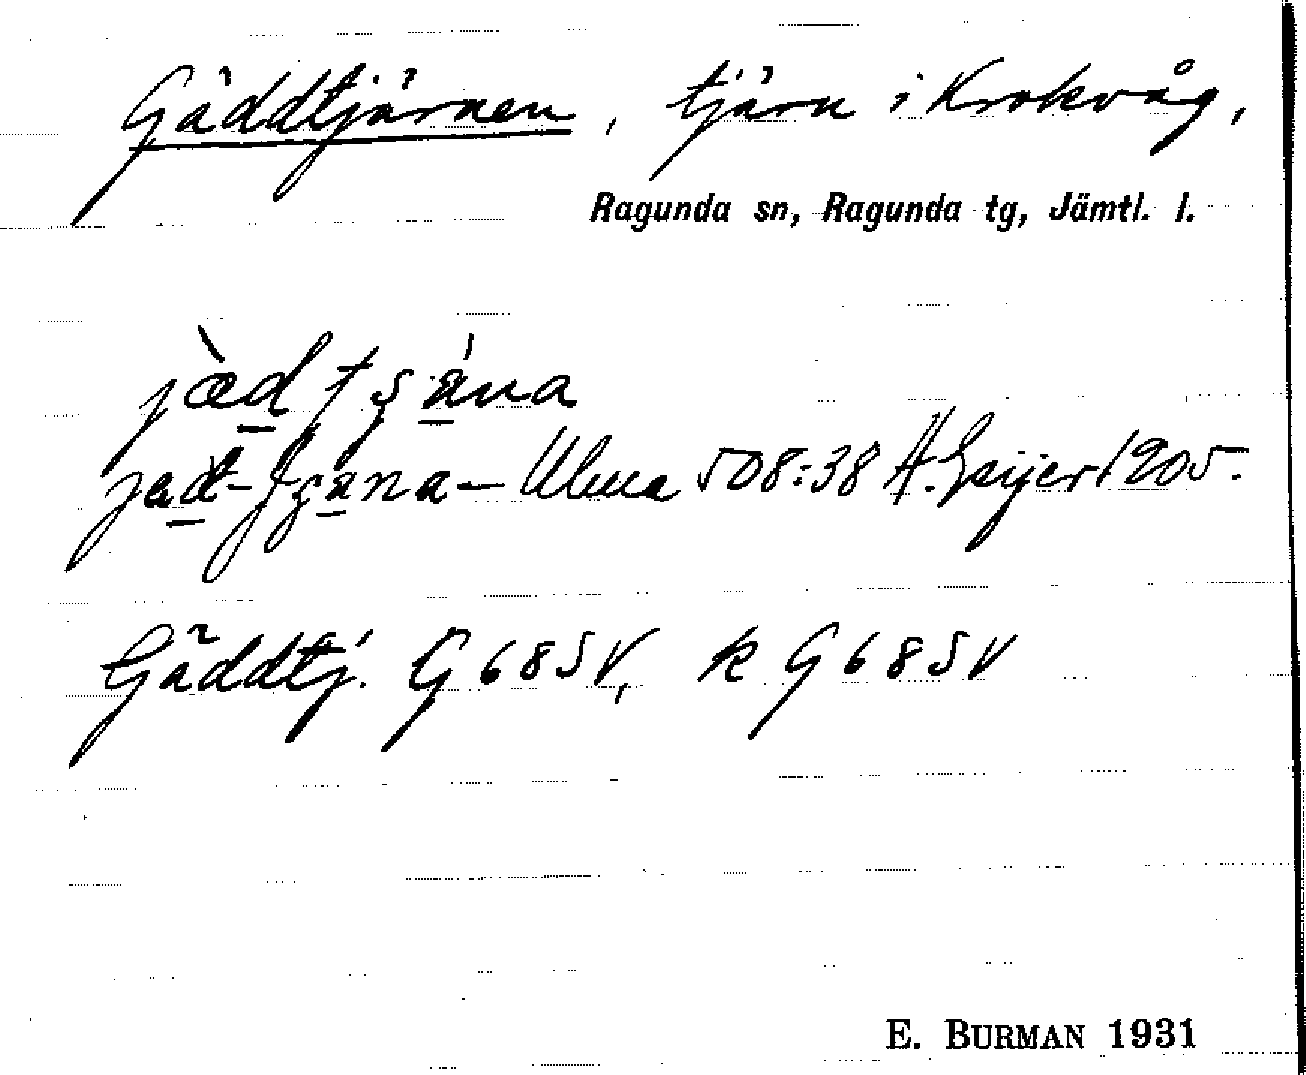 Gäddtjärnen, tjärn i Krokvåg,
Ragunda sn, Ragunda tg, Jämtl. l.
jæ̀d tʂána
jad-tʂana – Ulma 508:38 H. Geijer 1905.
Gäddtj. G685V, k G685V
E. BURMAN 1931